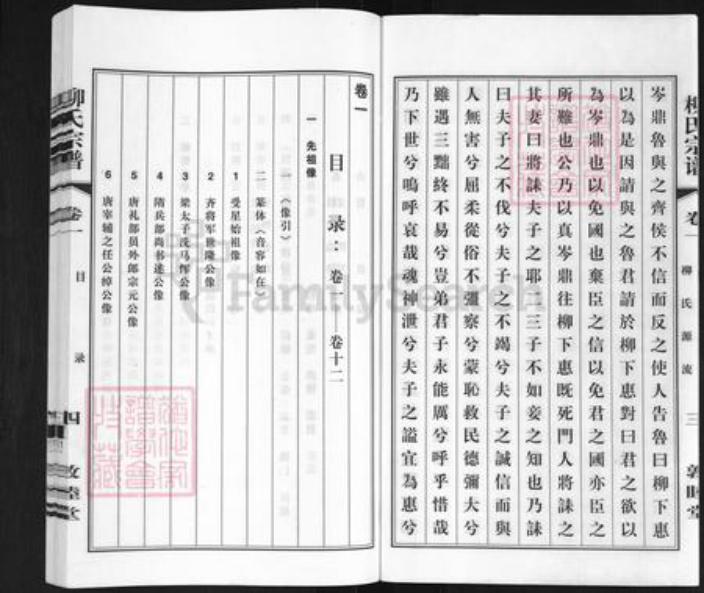 柳氏宗谱
卷一
柳氏源流
三
敦睦堂
岑鼎魯與之齊侯不信而反之使人告魯曰柳下惠
以為是因請與之魯君請於柳下惠對曰君之欲以
為岑鼎也以免國也棄臣之信以免君之國亦臣之
所難也公乃以真岑鼎往柳下惠既死門人將誄之
其妻曰將誄夫子之耶二三子不如妾之知也乃誄
曰夫子之不伐兮夫子之不竭兮夫子之誠信而與
人無害兮屈柔從俗不彌察兮蒙恥救民德彌大兮
雖遇三黜終不易兮豈弟君子永能厲兮呼乎惜哉
乃下世兮嗚呼哀哉魂神泄兮夫子之謚宜為惠兮
卷一
目录：卷一——卷十二
一 先祖像
一 《像引》
二 篆体《音容如在》
1 受星始祖像
2 齐将军世隆公像
3 梁太子洗马恽公像
4 隋兵部尚书述公像
5 唐礼部员外郎宗元公像
6 唐宰辅之任公倬公像
柳氏宗谱
卷一
目录
四
敦睦堂
FamilySearch